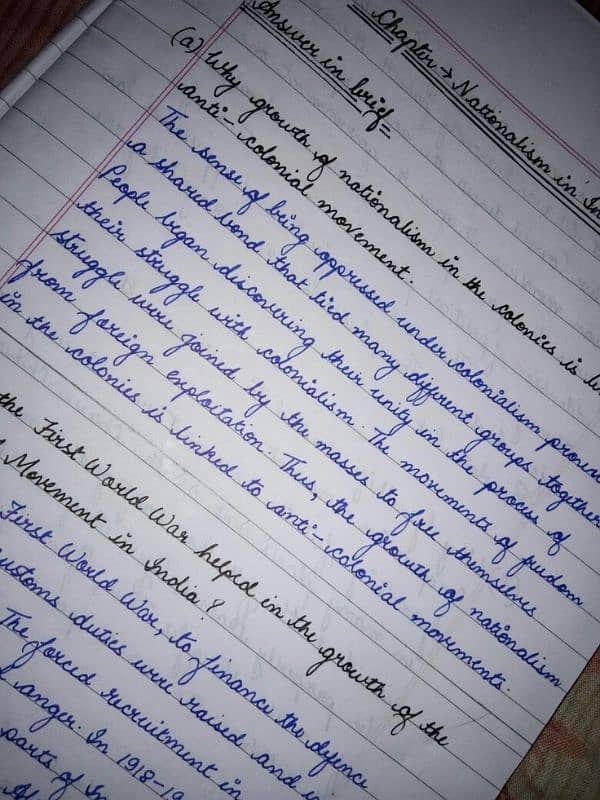 Chapter → Nationalism in
Answer in brief
(a) Why growth of nationalism in the colonies is
anti-colonial movement.
The sense of being oppressed under colonialism
a shared bond that tied many different groups together
People began discovering their unity in the process of
their struggle with colonialism. The movements of freedom
struggle were joined by the masses to free themselves
from foreign exploitation. Thus, the growth of nationalism
in the colonies is linked to anti-colonial movements.
the First World War helped in the growth of the
Movement in India?
First World War, to finance the defence
customs duties were raised and
The forced recruitment in
anger. In 1918-19
parts of